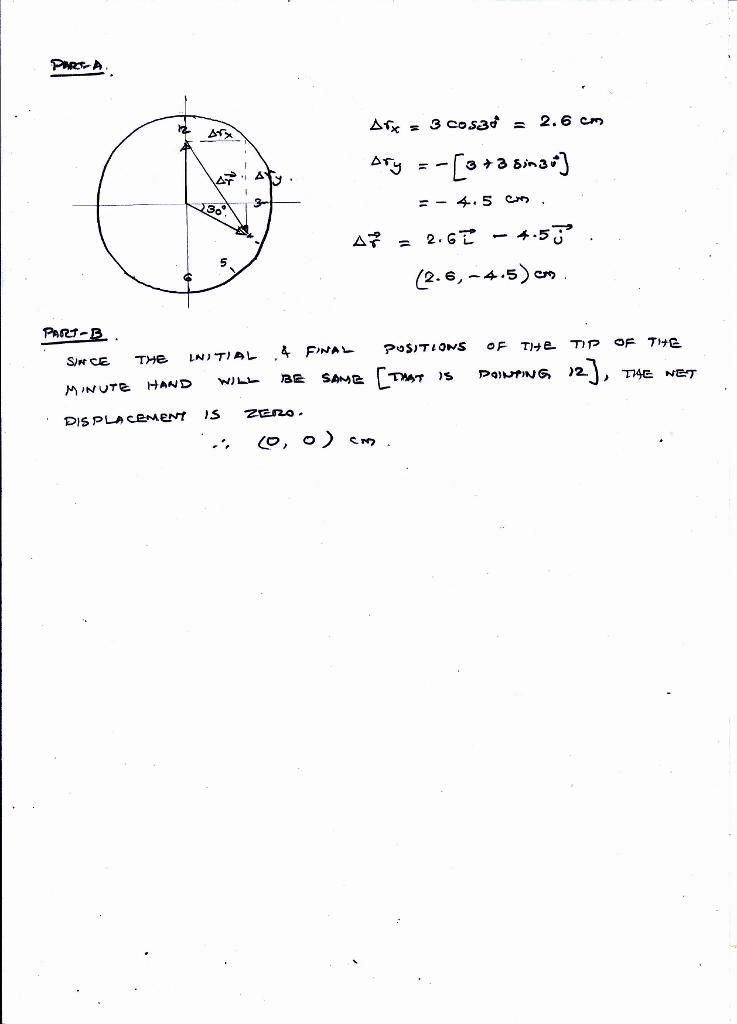 PART-A.
12
Δrx
Δr⃗
Δry.
30°
3
4
5
6
Δrx = 3 cos30° = 2.6 cm
Δry = -[3+3 sin30°]
= - 4.5 cm.
Δr⃗ = 2.6i⃗ - 4.5j⃗.
(2.6, -4.5) cm.
PART-B.
SINCE THE INITIAL & FINAL POSITIONS OF THE TIP OF THE
MINUTE HAND WILL BE SAME [THAT IS POINTING 12], THE NET
DISPLACEMENT IS ZERO.
∴ (0, 0) cm.